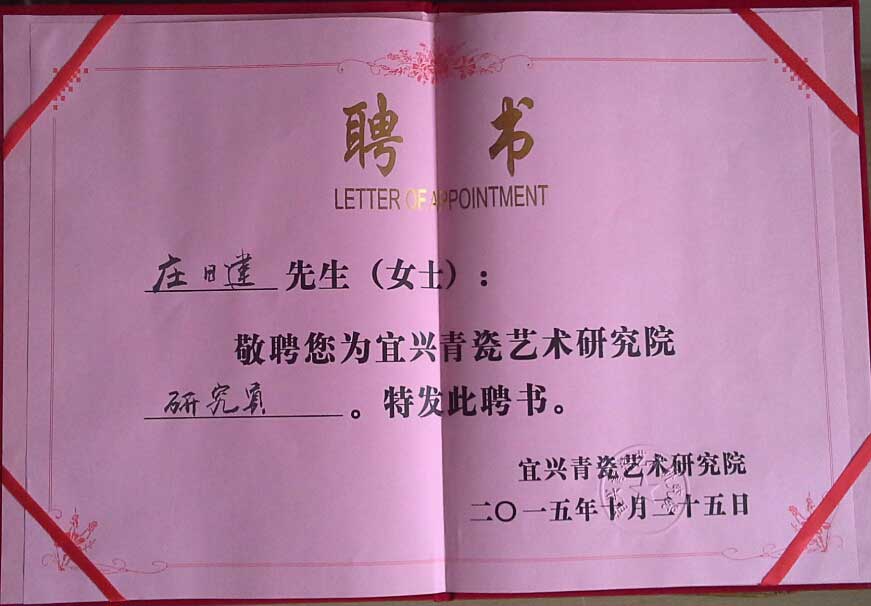 聘书
LETTER OF APPOINTMENT
庄日建 先生（女士）：
敬聘您为宜兴青瓷艺术研究院
研究员 。特发此聘书。
宜兴青瓷艺术研究院
二〇一五年十月二十五日